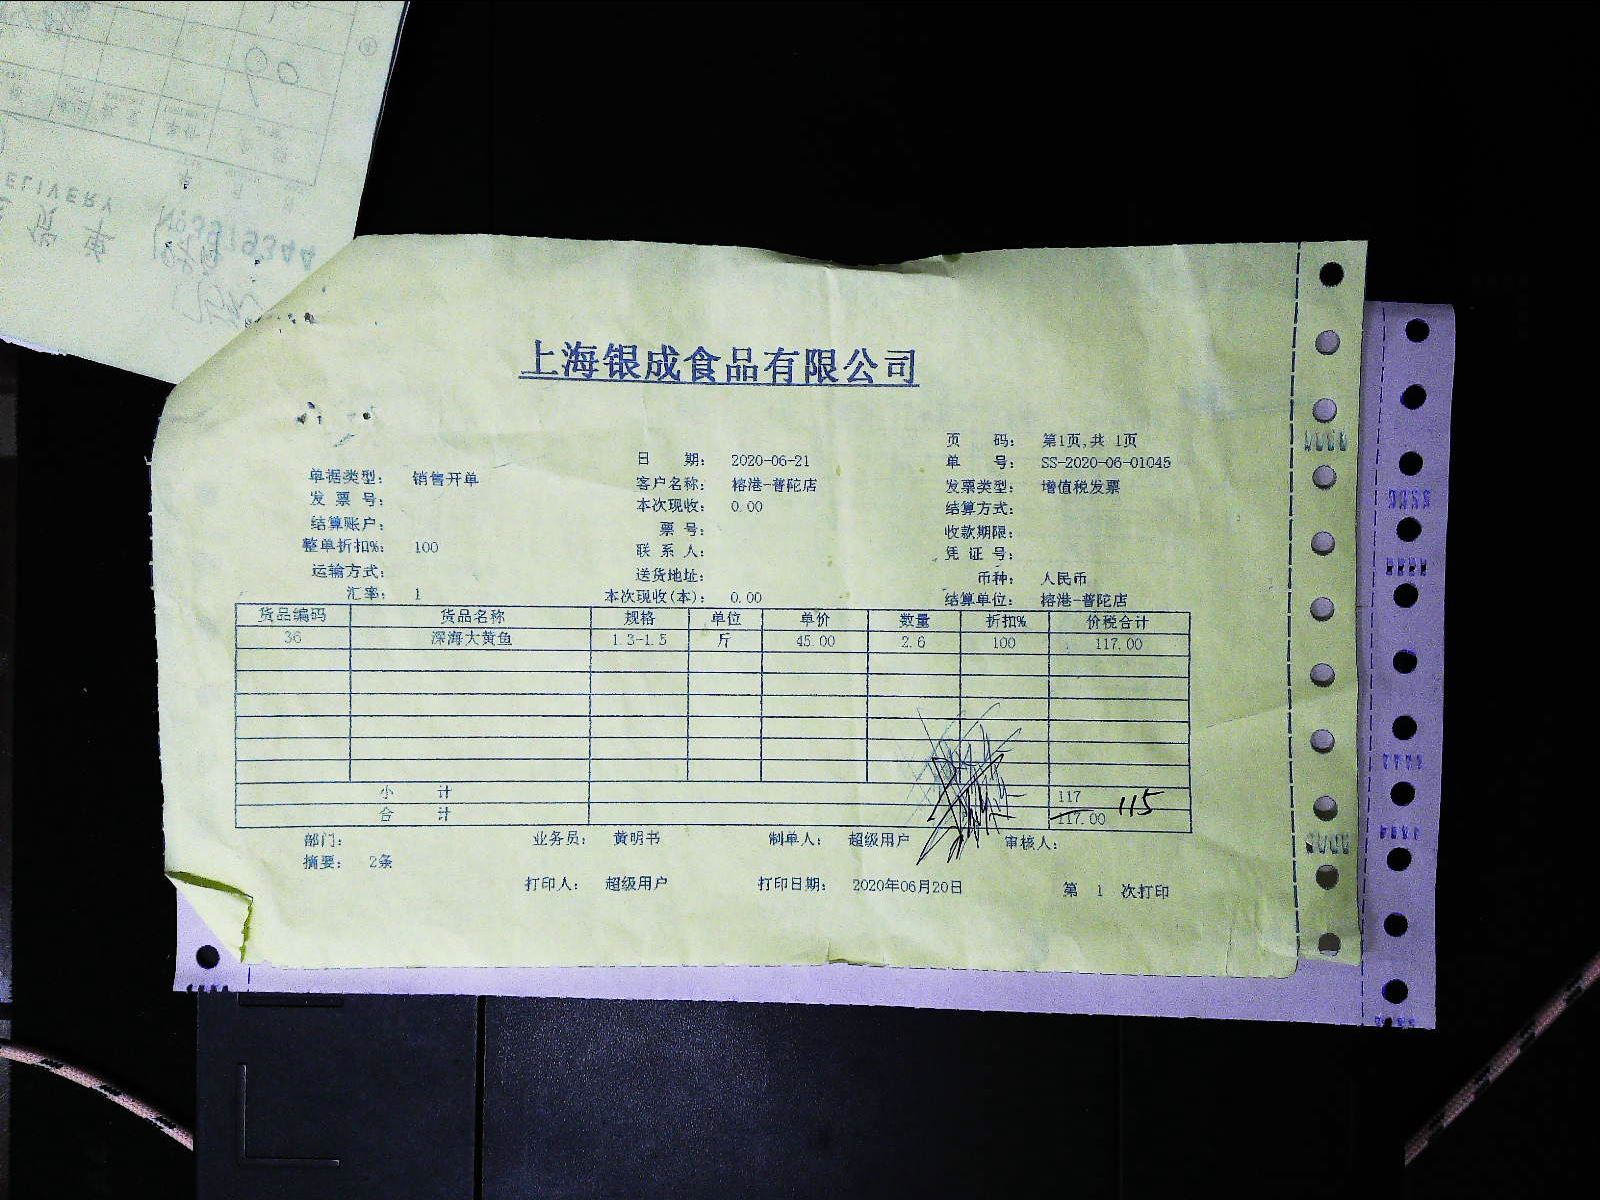 ELIVERY
货 单
№3979344
上海银成食品有限公司
页 码： 第1页,共 1页
日 期： 2020-06-21 单 号： SS-2020-06-01045
单据类型： 销售开单 客户名称： 榕港-普陀店 发票类型： 增值税发票
发 票 号： 本次现收： 0.00 结算方式：
结算账户： 票 号： 收款期限：
整单折扣%： 100 联 系 人： 凭 证 号：
运输方式： 送货地址： 币种： 人民币
汇率： 1 本次现收(本)： 0.00 结算单位： 榕港-普陀店
货品编码 货品名称 规格 单位 单价 数量 折扣% 价税合计
36 深海大黄鱼 1.3-1.5 斤 45.00 2.6 100 117.00
小 计 117
合 计 117.00 115
部门： 业务员： 黄明书 制单人： 超级用户 审核人：
摘要： 2条
打印人： 超级用户 打印日期： 2020年06月20日 第 1 次打印